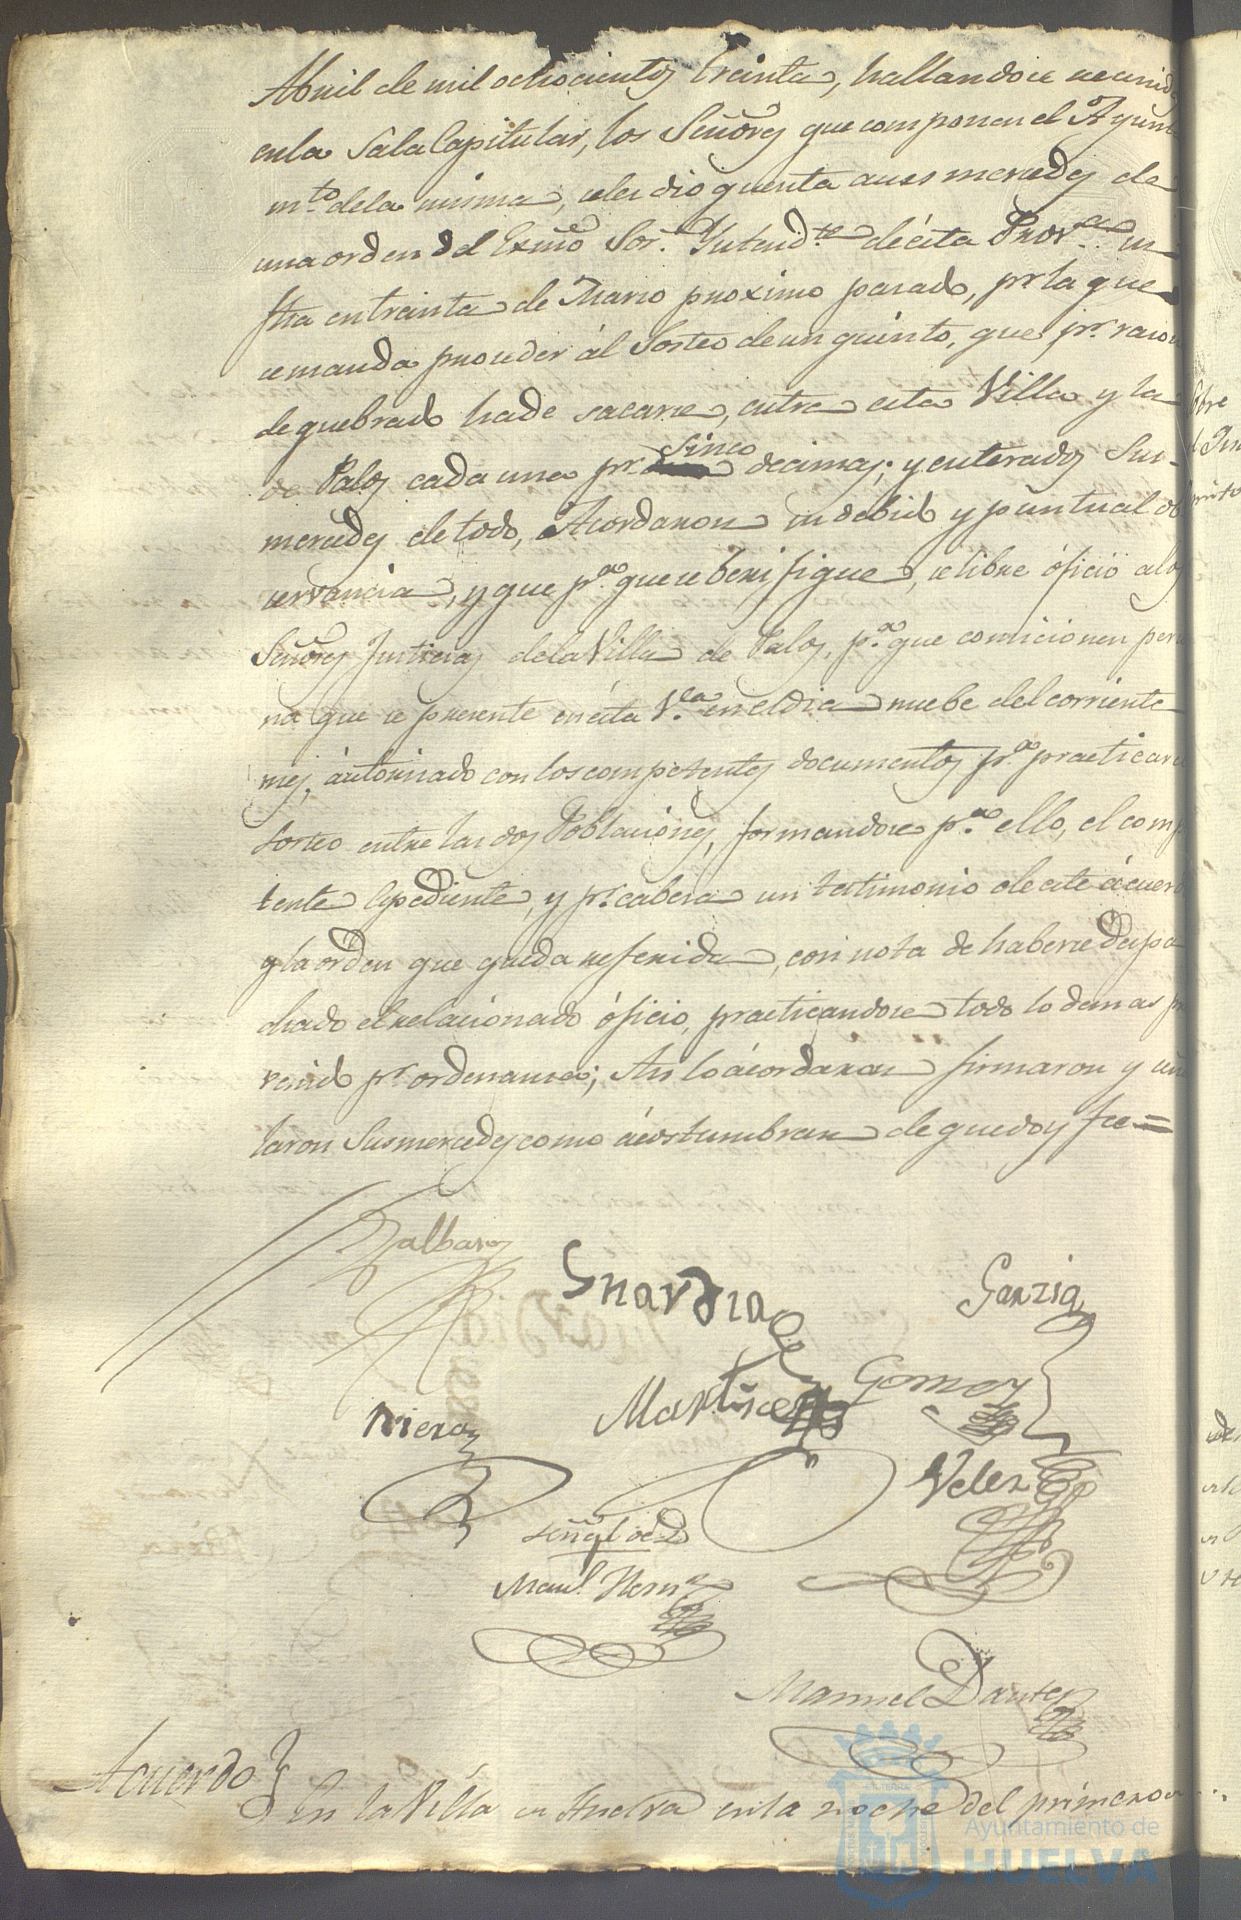 Abril de mil ochocientos treinta, hallandose reunid
en la Sala Capitular, los Señores que componen el Ayun
mto. de la misma, se les dio quenta a sus mercedes de
una orden del Exmo Sor. Yntendte de ésta Prova. su
fha en treinta de Marzo proximo pasado, pr. la que
se manda proceder ál Sorteo de un quinto, que pr. razon
de quebrado ha de sacarse, entre esta Villa y la
de Palos cada una pr. sinco decimas; y enterados Sus
mercedes de todo, Acordaron su debido y puntual ob
servancia, y que pa. que se berifique, se libre óficio a los
Señores Justicias de la Villa de Palos, pa. que comicionen perso
na que se presente en ésta Va. en el dia nuebe del corriente
mes, áutorisado con los competentes documentos pa. practicar el
Sorteo entre las dos Poblaciones, formandose pa. ello, el comp
tente Espediente, y pr. cabeza un testimonio de este ácuer
y la orden que queda referida, con nota de haberse despa
chado el relacionado óficio, practicandose todo lo demas p
venido pr. ordenanza; Asi lo ácordaron firmaron y señ
laron Sus mercedes como ácostumbran de que doy fee=
Galbaros
Guardia
Garzia
Gomez
Martinez
Riera
Velez
señal de D
Manl. Hernz
Manuel Duarte
Acuerdo
En la Villa de Huelva en la noche del primero
Ayuntamiento de
HUELVA